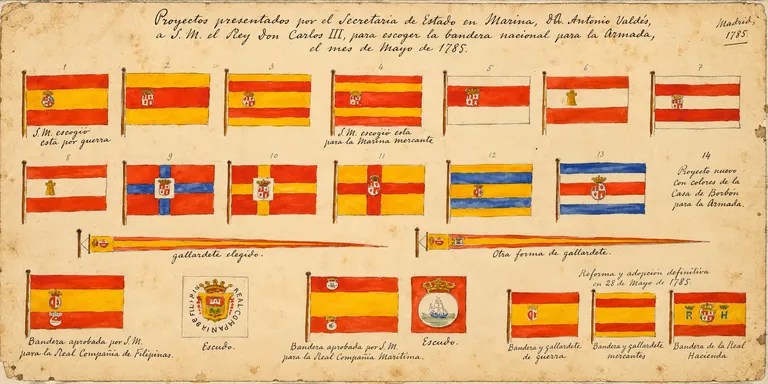 Proyectos presentados por el Secretaria de Estado en Marina, Dn Antonio Valdés,
a S.M. el Rey Don Carlos III, para escoger la bandera nacional para la Armada,
el mes de Mayo de 1785.
Madrid,
1785.
1
2
3
4
5
6
7
S.M. escogió
esta por guerra
S.M. escogió esta
para la Marina mercante
8
9
10
11
12
13
14
Proyecto nuevo
con colores de la
Casa de Borbón
para la Armada.
gallardete elegido.
Otra forma de gallardete.
Reforma y adopción definitiva
en 28 de Mayo de 1785.
REAL COMPANIA DE FILIPI
R H
Bandera aprobada por S.M.
para la Real Compañia de Filipinas.
Escudo.
Bandera aprobada por S.M.
para la Real Compañia Maritima.
Escudo.
Bandera y gallardete
de guerra
Bandera y gallardete
mercantes
Bandera de la Real
Hacienda